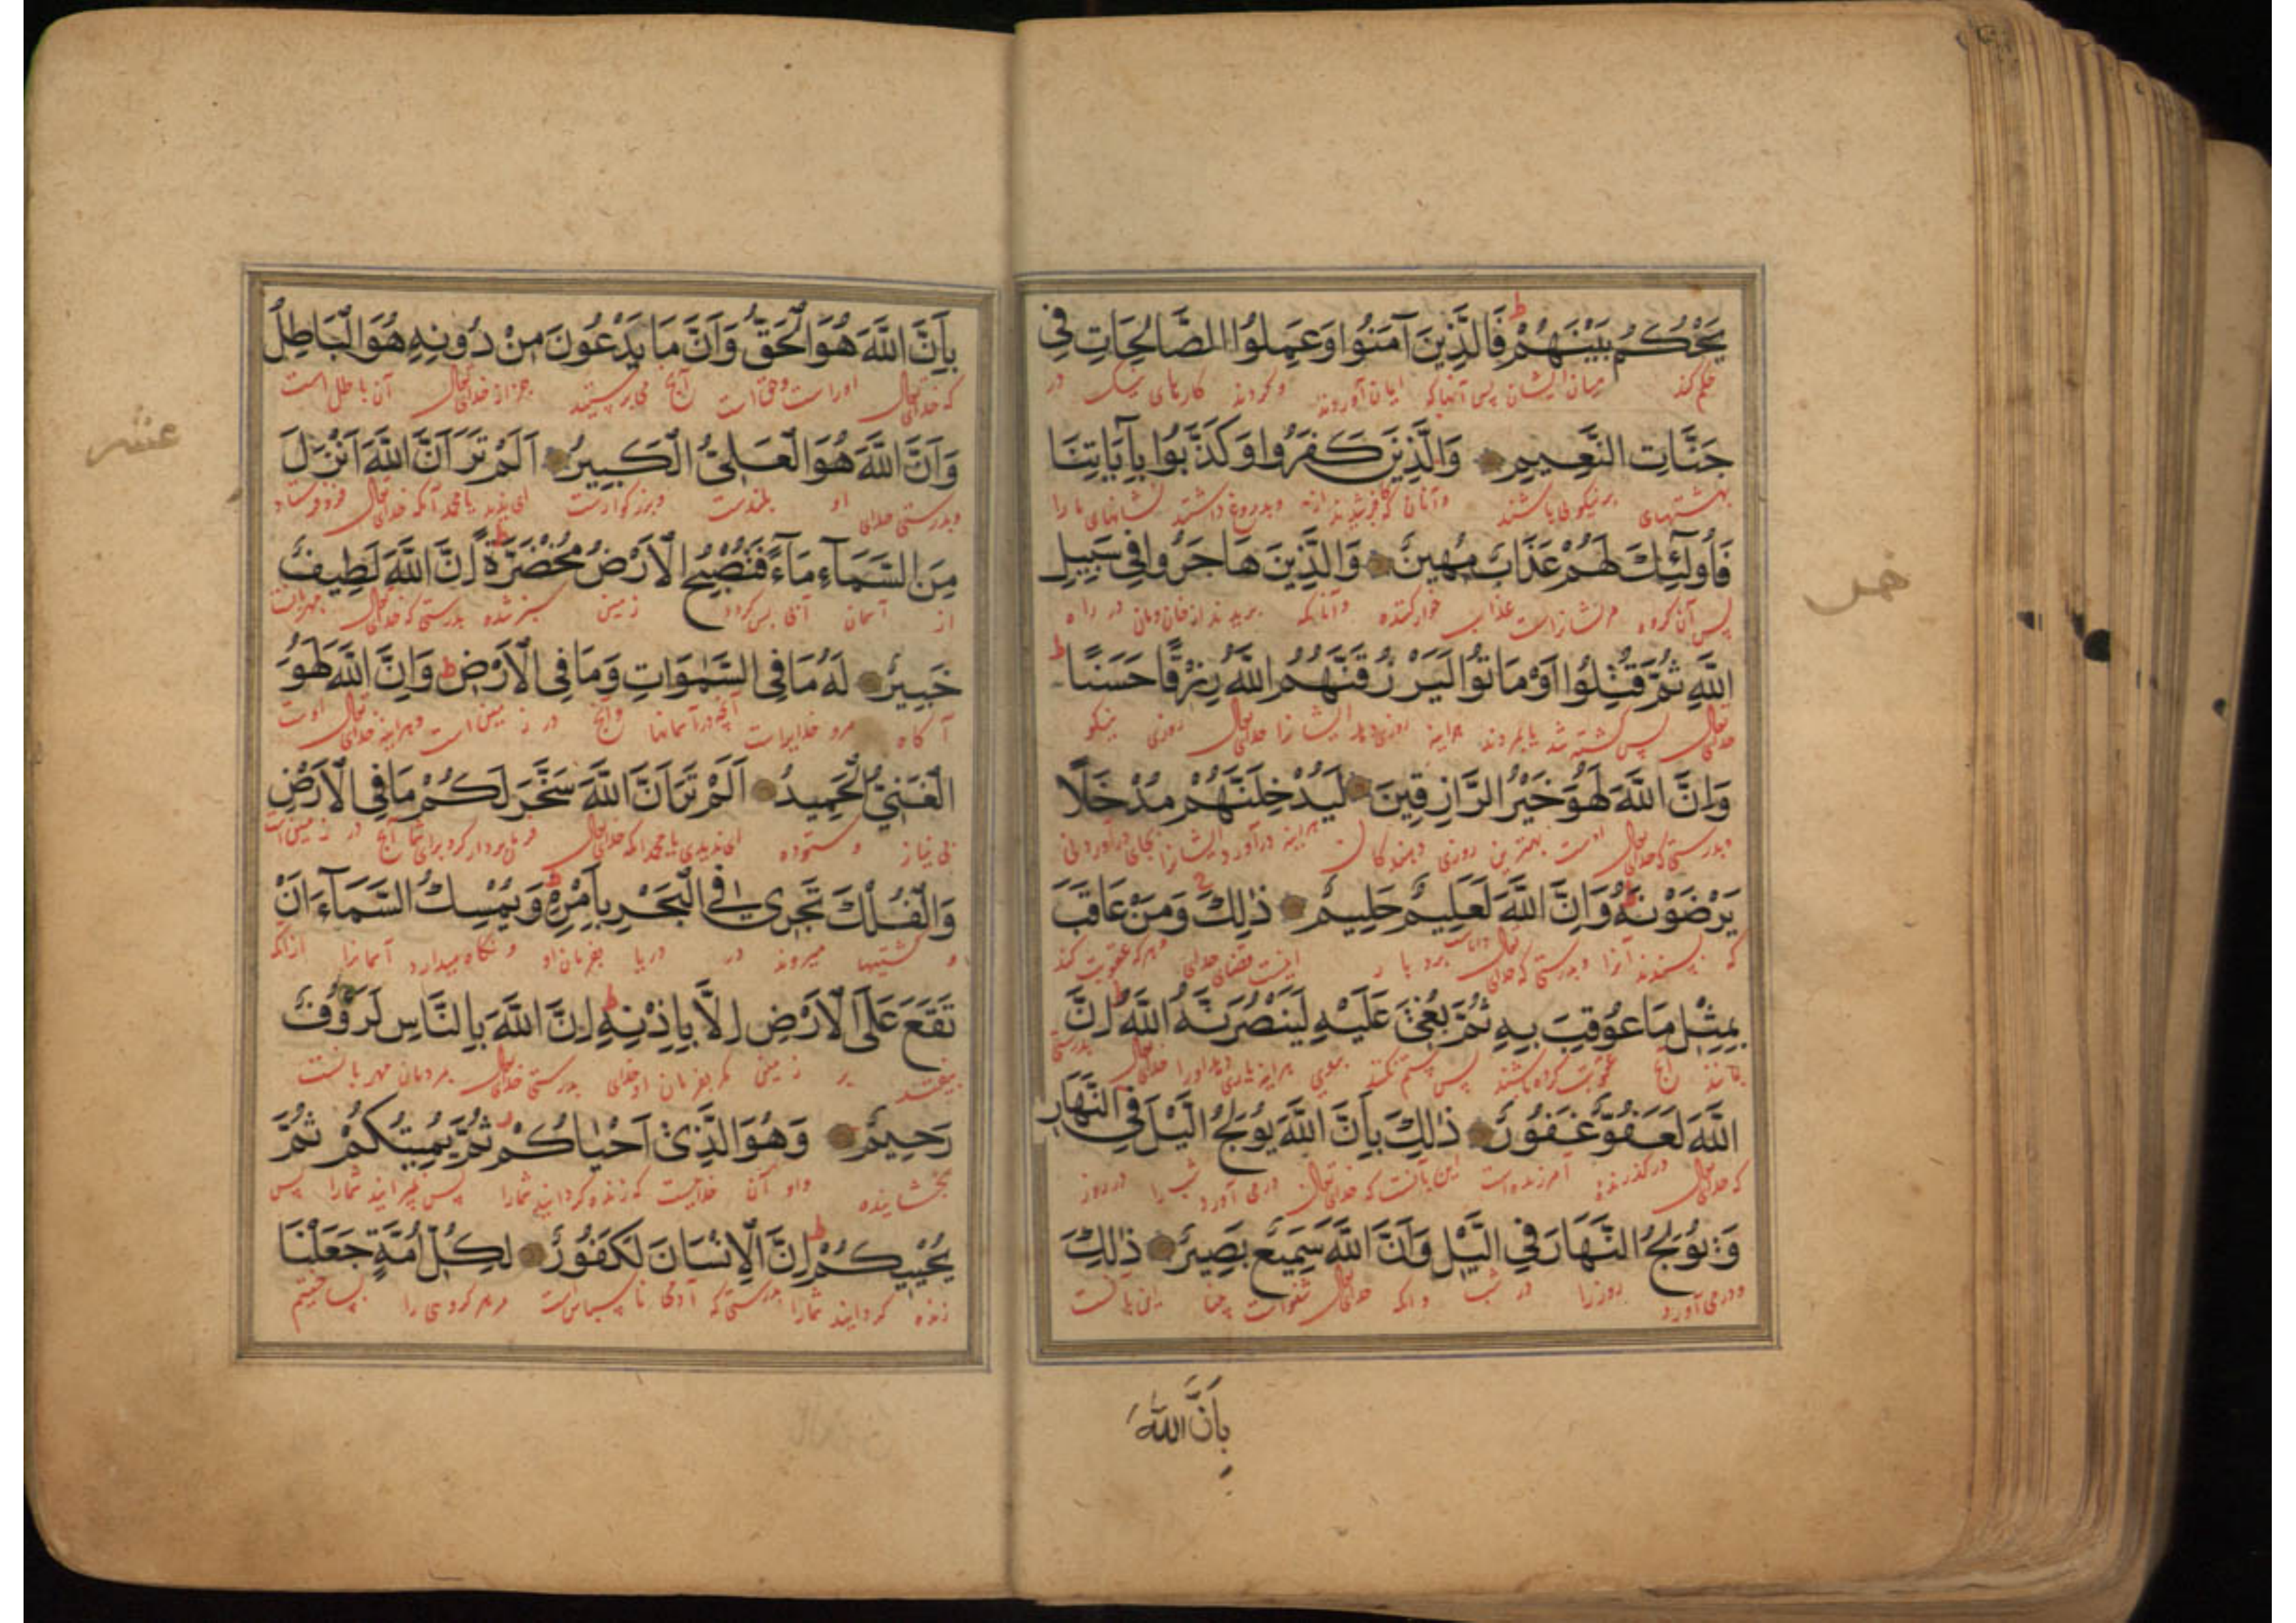 يَحْكُمُ بَيْنَهُمْ ط فَالَّذِينَ آمَنُوا وَعَمِلُوا الصَّالِحَاتِ فِي
حکم کند میان ایشان پس آنها که ایمان آوردند و کردند کارهای نیک در
جَنَّاتِ النَّعِيمِ وَالَّذِينَ كَفَرُوا وَكَذَّبُوا بِآيَاتِنَا
بهشتهای و آنان که کافر شدند و بدروغ داشتند نشانهای ما را
فَأُولَٰئِكَ لَهُمْ عَذَابٌ مُهِينٌ وَالَّذِينَ هَاجَرُوا فِي سَبِيلِ
پس آن گروه عذاب خوار کننده و آنانکه بریدند از خان و مان در راه
اللَّهِ ثُمَّ قُتِلُوا أَوْ مَاتُوا لَيَرْزُقَنَّهُمُ اللَّهُ رِزْقًا حَسَنًا ط
خدای تعالی پس کشته شد یا بمردند هراینه روزی دهد ایشانرا خدای تعالی روزی نیکو
وَإِنَّ اللَّهَ لَهُوَ خَيْرُ الرَّازِقِينَ لَيُدْخِلَنَّهُمْ مُدْخَلًا
و بدرستی که خدای تعالی اوست بهترین روزی دهندکان هراینه درآورد ایشانرا بجای درآوردنی
يَرْضَوْنَهُ ط وَإِنَّ اللَّهَ لَعَلِيمٌ حَلِيمٌ ذَٰلِكَ وَمَنْ عَاقَبَ
که بپسندند آنرا و بدرستی که خدای تعالی داناست بردبار اینست قضای خدای و هر که عقوبت کند
بِمِثْلِ مَا عُوقِبَ بِهِ ثُمَّ بُغِيَ عَلَيْهِ لَيَنْصُرَنَّهُ اللَّهُ ط إِنَّ
بمانند آنچ عقوبت کرده باشند پس ستم کنند هراینه یاری دهد او را خدای تعالی بدرستی
اللَّهَ لَعَفُوٌّ غَفُورٌ ذَٰلِكَ بِأَنَّ اللَّهَ يُولِجُ اللَّيْلَ فِي النَّهَارِ
که خدای تعالی درگذرنده آمرزنده است این بآنست که خدای تعالی درمی آورد شب را در روز
وَيُولِجُ النَّهَارَ فِي اللَّيْلِ وَأَنَّ اللَّهَ سَمِيعٌ بَصِيرٌ ذَٰلِكَ
و درمی آورد روز را در شب و آنکه خدای تعالی شنواست بینا این بآنست
بِأَنَّ اللَّهَ
خمس
بِأَنَّ اللَّهَ هُوَ الْحَقُّ وَأَنَّ مَا يَدْعُونَ مِنْ دُونِهِ هُوَ الْبَاطِلُ
که خدای تعالی اوراست و حق است آنچ می پرستید جز از خدای تعالی آن باطل است
وَأَنَّ اللَّهَ هُوَ الْعَلِيُّ الْكَبِيرُ أَلَمْ تَرَ أَنَّ اللَّهَ أَنْزَلَ
و بدرستی خدای او بلندست و بزرکوارست ای ندید یا محمد آنکه خدای تعالی فرو فرستاد
مِنَ السَّمَاءِ مَاءً فَتُصْبِحُ الْأَرْضُ مُخْضَرَّةً ط إِنَّ اللَّهَ لَطِيفٌ
از آسمان آبی پس کردد زمین سبز شده بدرستی که خدای تعالی مهربانست
خَبِيرٌ لَهُ مَا فِي السَّمٰوَاتِ وَمَا فِي الْأَرْضِ ط وَإِنَّ اللَّهَ لَهُوَ
آکاه مرو خدایراست آنچه در آسمانها و آنچ در زمین است و هراینه خدای تعالی اوست
الْغَنِيُّ الْحَمِيدُ أَلَمْ تَرَ أَنَّ اللَّهَ سَخَّرَ لَكُمْ مَا فِي الْأَرْضِ
بی نیاز و ستوده ای ندیدی یا محمد آنکه خدای تعالی فرمان بردار کرد برای شما آنچ در زمین است
وَالْفُلْكَ تَجْرِي فِي الْبَحْرِ بِأَمْرِهِ ط وَيُمْسِكُ السَّمَاءَ أَنْ
و کشتیها میروند در دریا بفرمان او و نکاه میدارد آسمانرا ازآنکه
تَقَعَ عَلَى الْأَرْضِ إِلَّا بِإِذْنِهِ ط إِنَّ اللَّهَ بِالنَّاسِ لَرَؤُوفٌ
بیفتد بر زمین مکر بفرمان او خدای بدرستی خدای تعالی بمردمان مهربانست
رَحِيمٌ وَهُوَ الَّذِي أَحْيَاكُمْ ثُمَّ يُمِيتُكُمْ ثُمَّ
بخشاینده و او آن خدایست که زنده کردانید شمارا پس بمیراند شمارا پس
يُحْيِيكُمْ ط إِنَّ الْإِنْسَانَ لَكَفُورٌ لِكُلِّ أُمَّةٍ جَعَلْنَا
زنده کرداند شمارا بدرستی که آدمی ناسپاس است مر هر کروهی را بساختیم
عشر